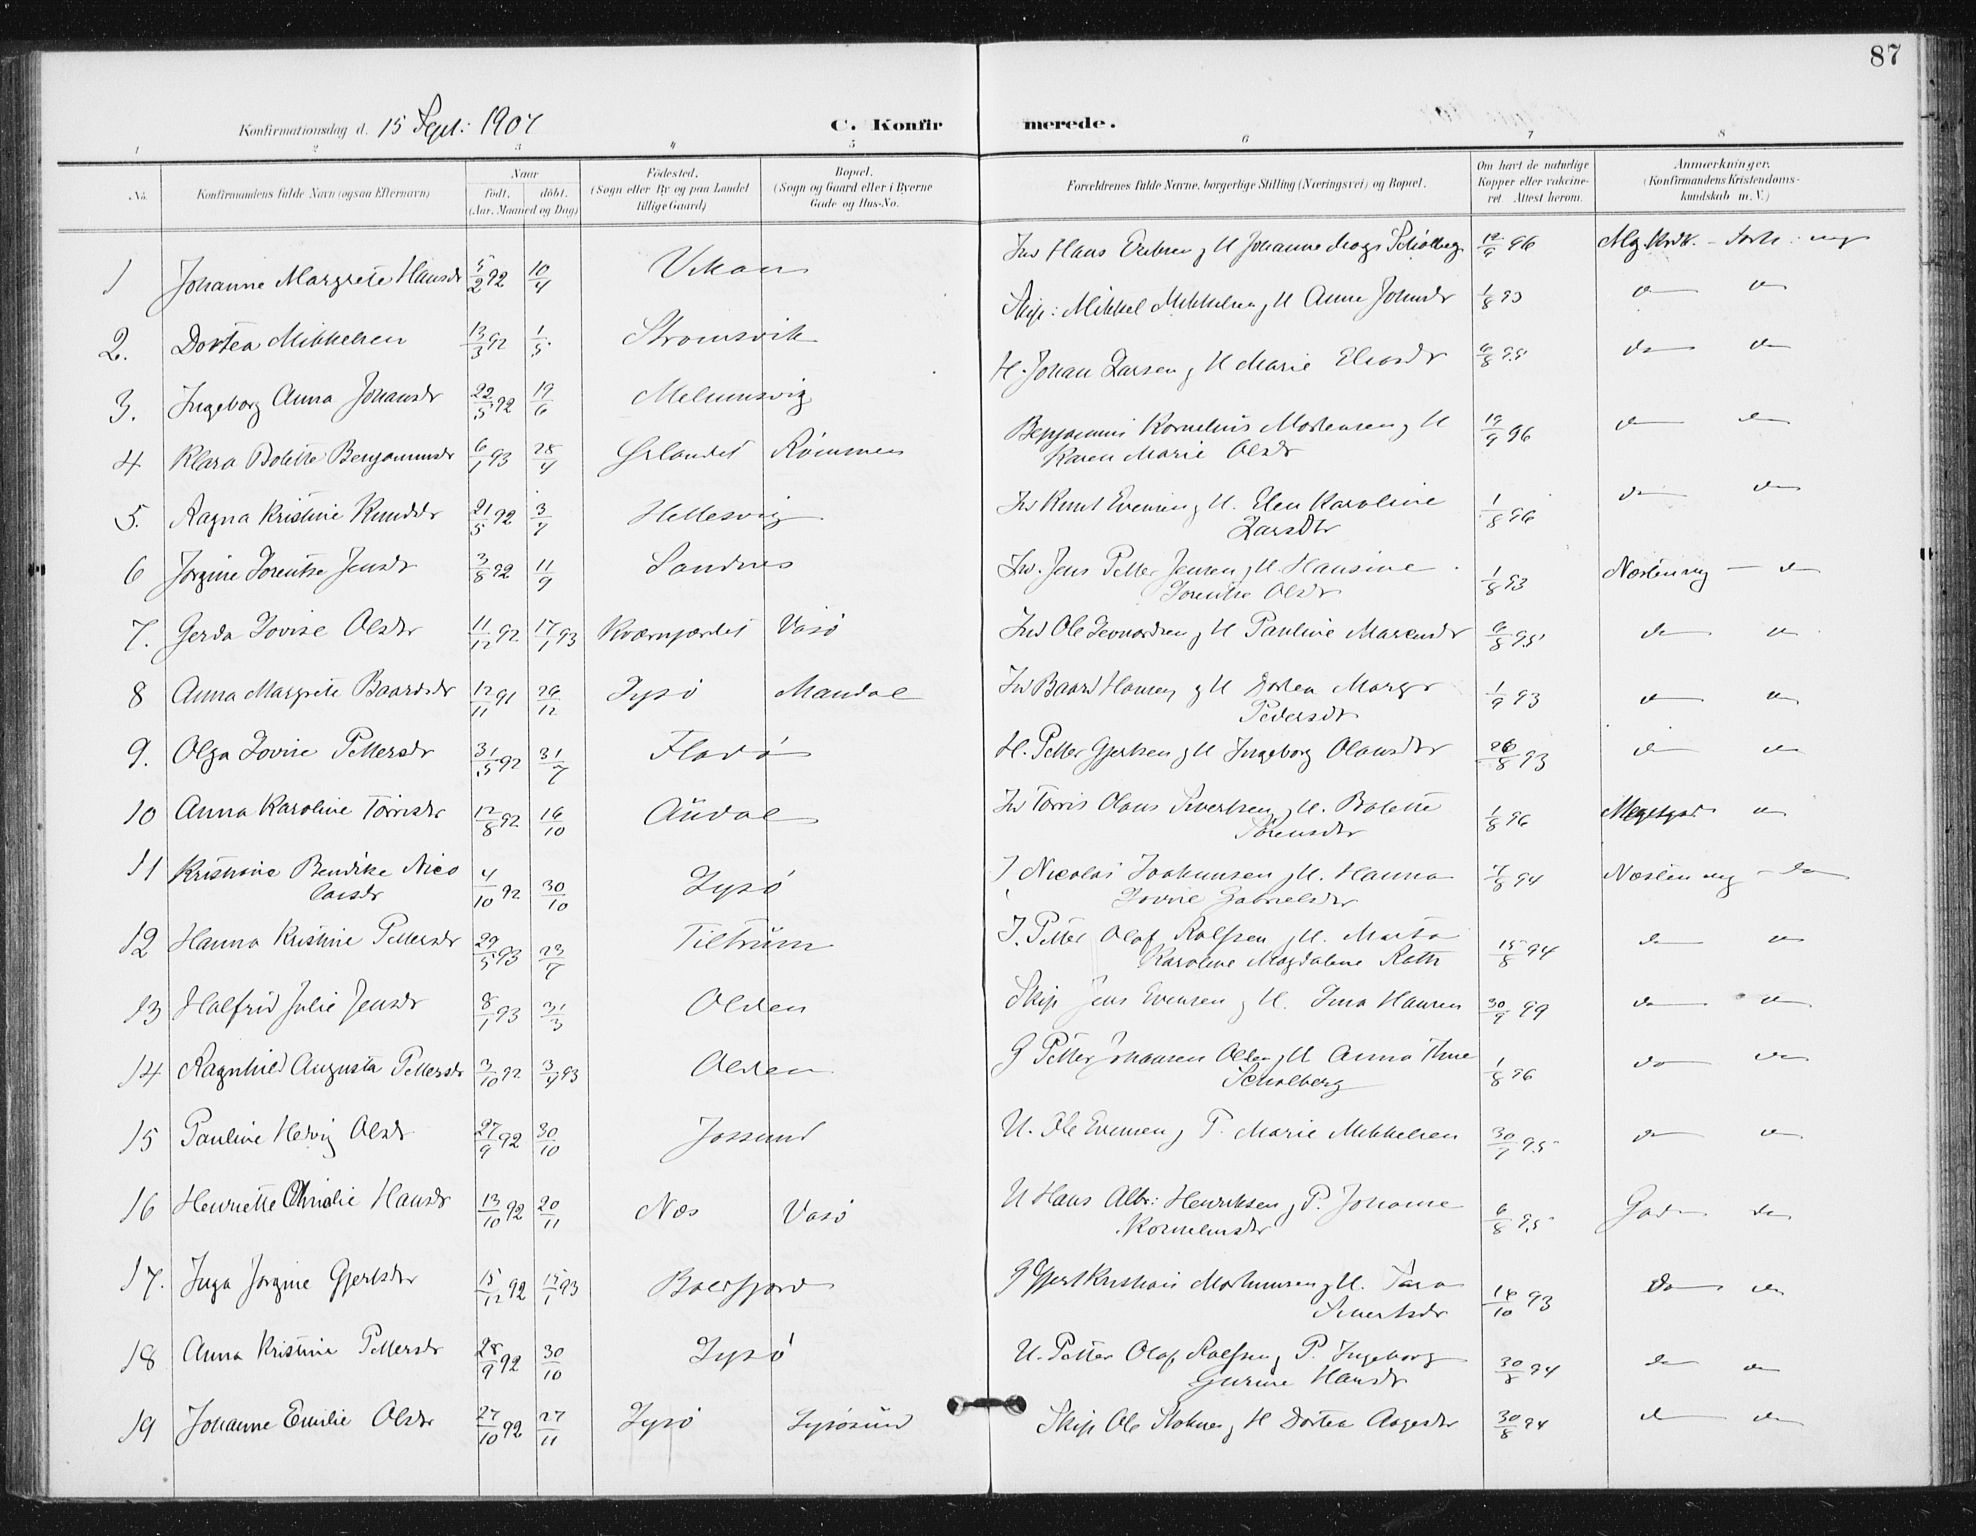 87
Konfirmationsdag d. 15 Sept: 1907 C. Konfirmerede.
1 2 3 4 5 6 7 8
No.
Konfirmandens fulde Navn (ogsaa Efternavn)
Naar
født, døbt.
(Aar, Maaned og Dag)
Fødested.
(Sogn eller By og paa Landet
tillige Gaard)
Bopæl.
(Sogn og Gaard eller i Byerne
Gade og Hus-No.
Forældrenes fulde Navne, borgerlige Stilling (Næringsvei) og Bopæl.
Om havt de naturlige
Kopper eller vakcine-
ret Attest herom.
Anmærkninger.
(Konfirmandens Kristendoms-
kundskab m. V.)
1 Johanne Margrete Hansdr 5/2 92 10/4 Vikan Hans & H Johanne 19/9 96
2. Dortea Mikkelsen 13/3 92 1/5 Stromsvik Skip: Mikkel Mikkelsen & H Anna Johnsdr 1/8 93
3. Ingeborg Anna Johansdr 22/5 92 19/6 Melumsvig H. Johan Larsen & H Marie Eliasdr 6/8 95
4 Klara Bolette Benjaminsdr 6/1 93 28/4 Ørlandet Rømmen Benjamin Kornelius Mortensen & H
Karen Marie Olsdr 19/9 96
5. Ragna Kristine Knudsdr 21/5 92 3/7 Hellesvig Knut Evensen & H. Elen Karoline
Larsdtr 1/8 96
6 Jørgine Lorentse Jensdr 3/8 92 11/9 Sandnes Jens Petter Jensen & H. Hansine
Lorentse Olsdr 1/8 93 Næsten mg
7. Gerda Lovise Olsdr 11/12 92 17/1 93 Kværnfjordet Vasø Ole Leonardsen & H Pauline 6/8 95
8 Anna Margrete Baardsdr 12/11 91 26/12 Lysø Mandal Baard Hansen & H Dortea Margr
Pedersdr 1/9 93
9. Olga Lovise Pettersdr 31/5 92 31/7 Flavø H. Petter Gjertsen & H Ingeborg Olausdr 26/8 93
10 Anna Karoline Torrisdr 12/8 92 16/10 Aüdal Torris Olaus Sivertsen & H. Bolette
Sørensdr 1/8 96
11 Kristiane Bendikte Nico
laisdr 4/10 92 30/10 Lysø Nicolai Joakimsen & H. Hanna
Lovise Gabrielsdr 7/8 94 Næsten mg
12 Hanna Kristine Pettersdr 29/5 93 23/7 Tiltrüm Petter Olaf Rolfsen & H. Marta
Karoline Magdalene Rath 15/8 94
13 Halfrid Julie Jensdr 8/1 93 31/3 Olden Skip Jens Evensen & H. Ima Hansen 30/9 99
14 Ragnhild Augusta Pettersdr 3/10 92 3/4 93 Olden G Petter Johansen Olden & H Anna Thue
Schølberg 1/8 96
15 Pauline Hedvig Olsdr 27/9 92 30/10 Jøssund U. Ole Evensen & P. Marie Mikkelsen 30/7 95
16 Henriette Hansdr 13/10 92 20/11 Næs Vasø U Hans Alb: Henriksen & P. Johanne
Korneliusdr 6/8 95 God
17. Inga Jørgine Gjertsdr 15/12 92 15/1 93 Boelfjord G Gjert Kristian & H. Sara
Sivertsdr 16/10 93
18 Anna Kristine Pettersdr 28/9 92 30/10 Lysø U. Petter Olaf Rolfsen & P. Ingeborg
Gurine Hansdr 30/8 94
19 Johanne Emilie Olsdr 27/10 92 27/11 Lysø Lysøsund Skip Ole Stokne & H Dortea Aagesdr 30/8 94